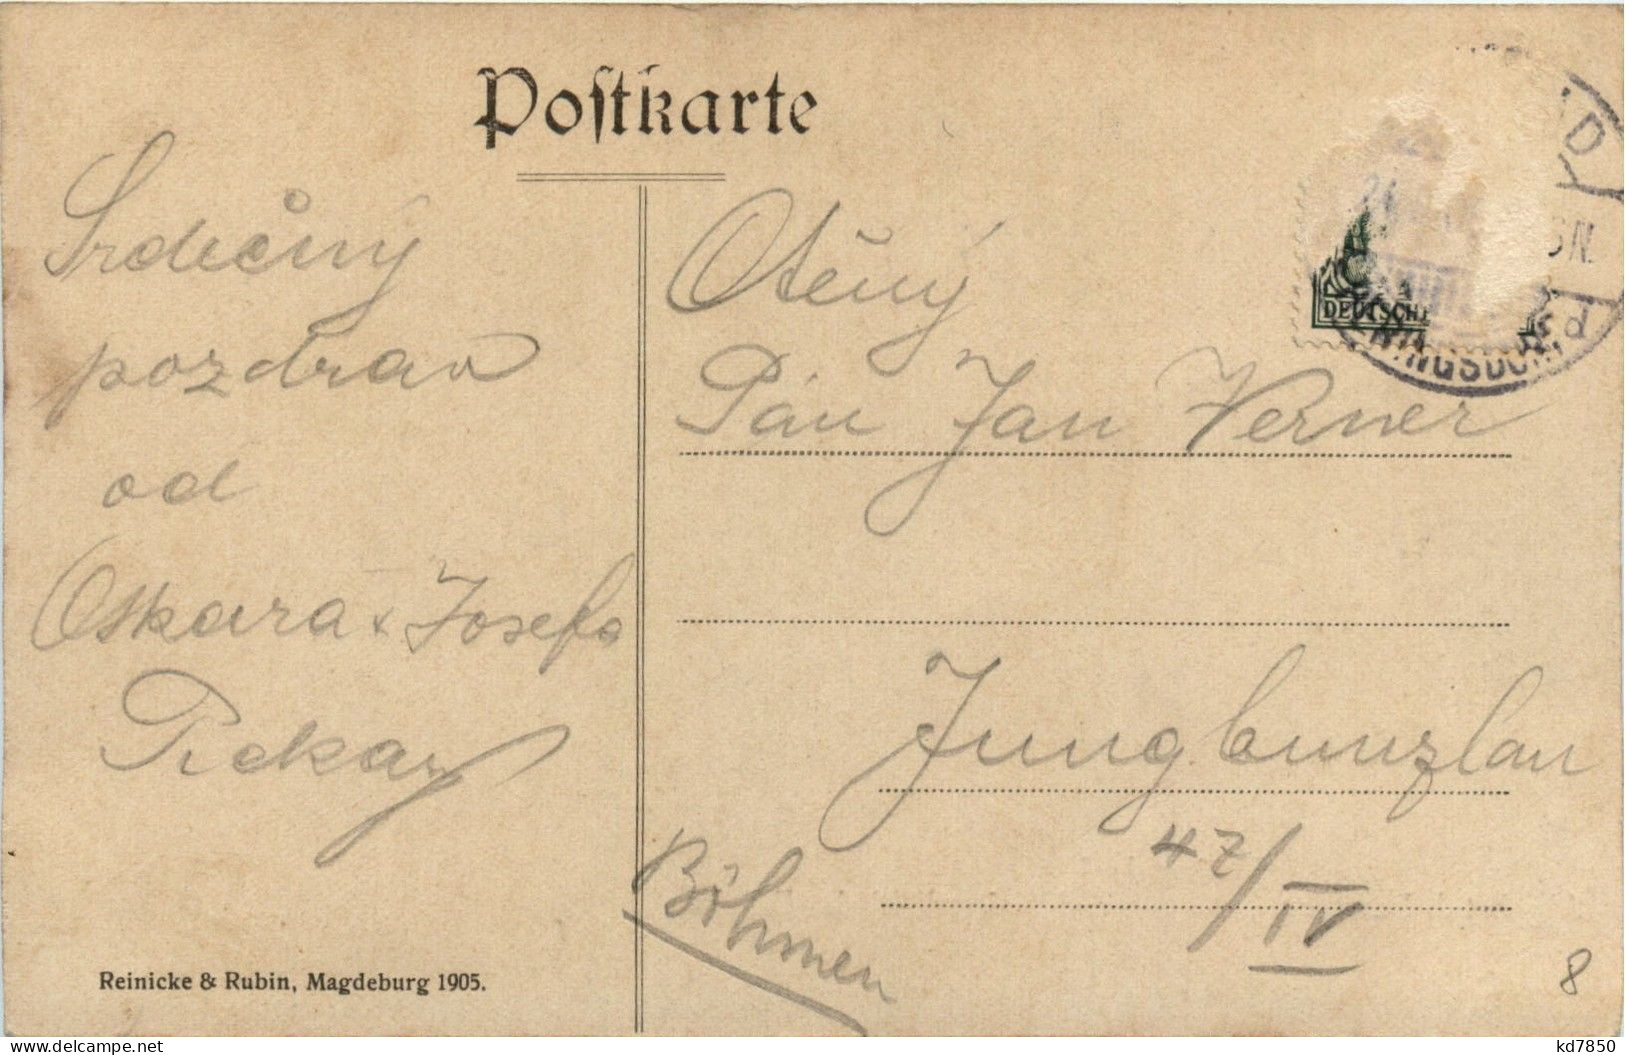 Postkarte
Srdečný
pozdrav
od
Oskara & Josefa
Otěný
Pán Jan Verner
Jungbunzlau
47/IV
Böhmen
DEUTSCHE
Reinicke & Rubin, Magdeburg 1905.
8
kd7850